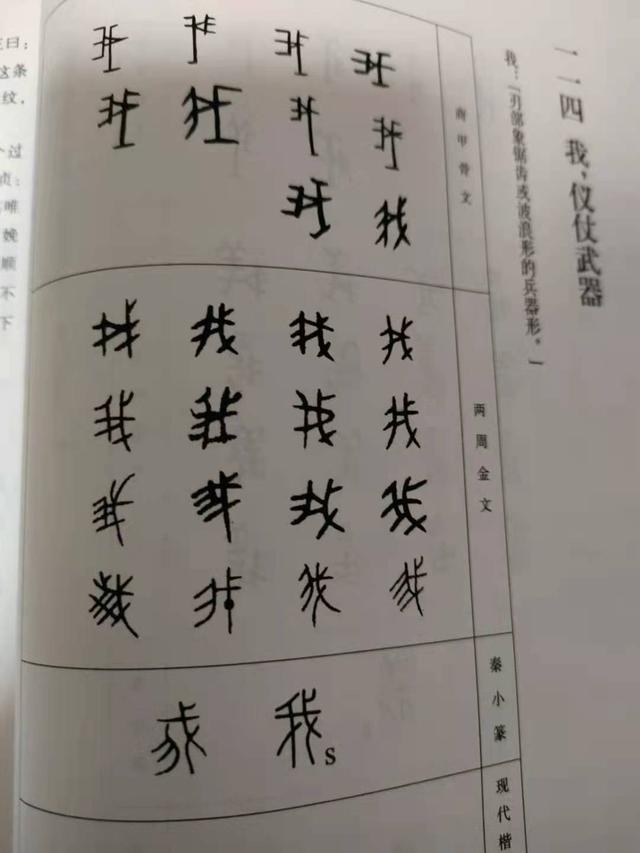 一一四 我，仪仗武器
我：「刃部象锯齿或波浪形的兵器形。」
商甲骨文
两周金文
秦小篆
s
现代楷
曰；
这条
纹，
个过
贞：
唯
娩
顺
不
下